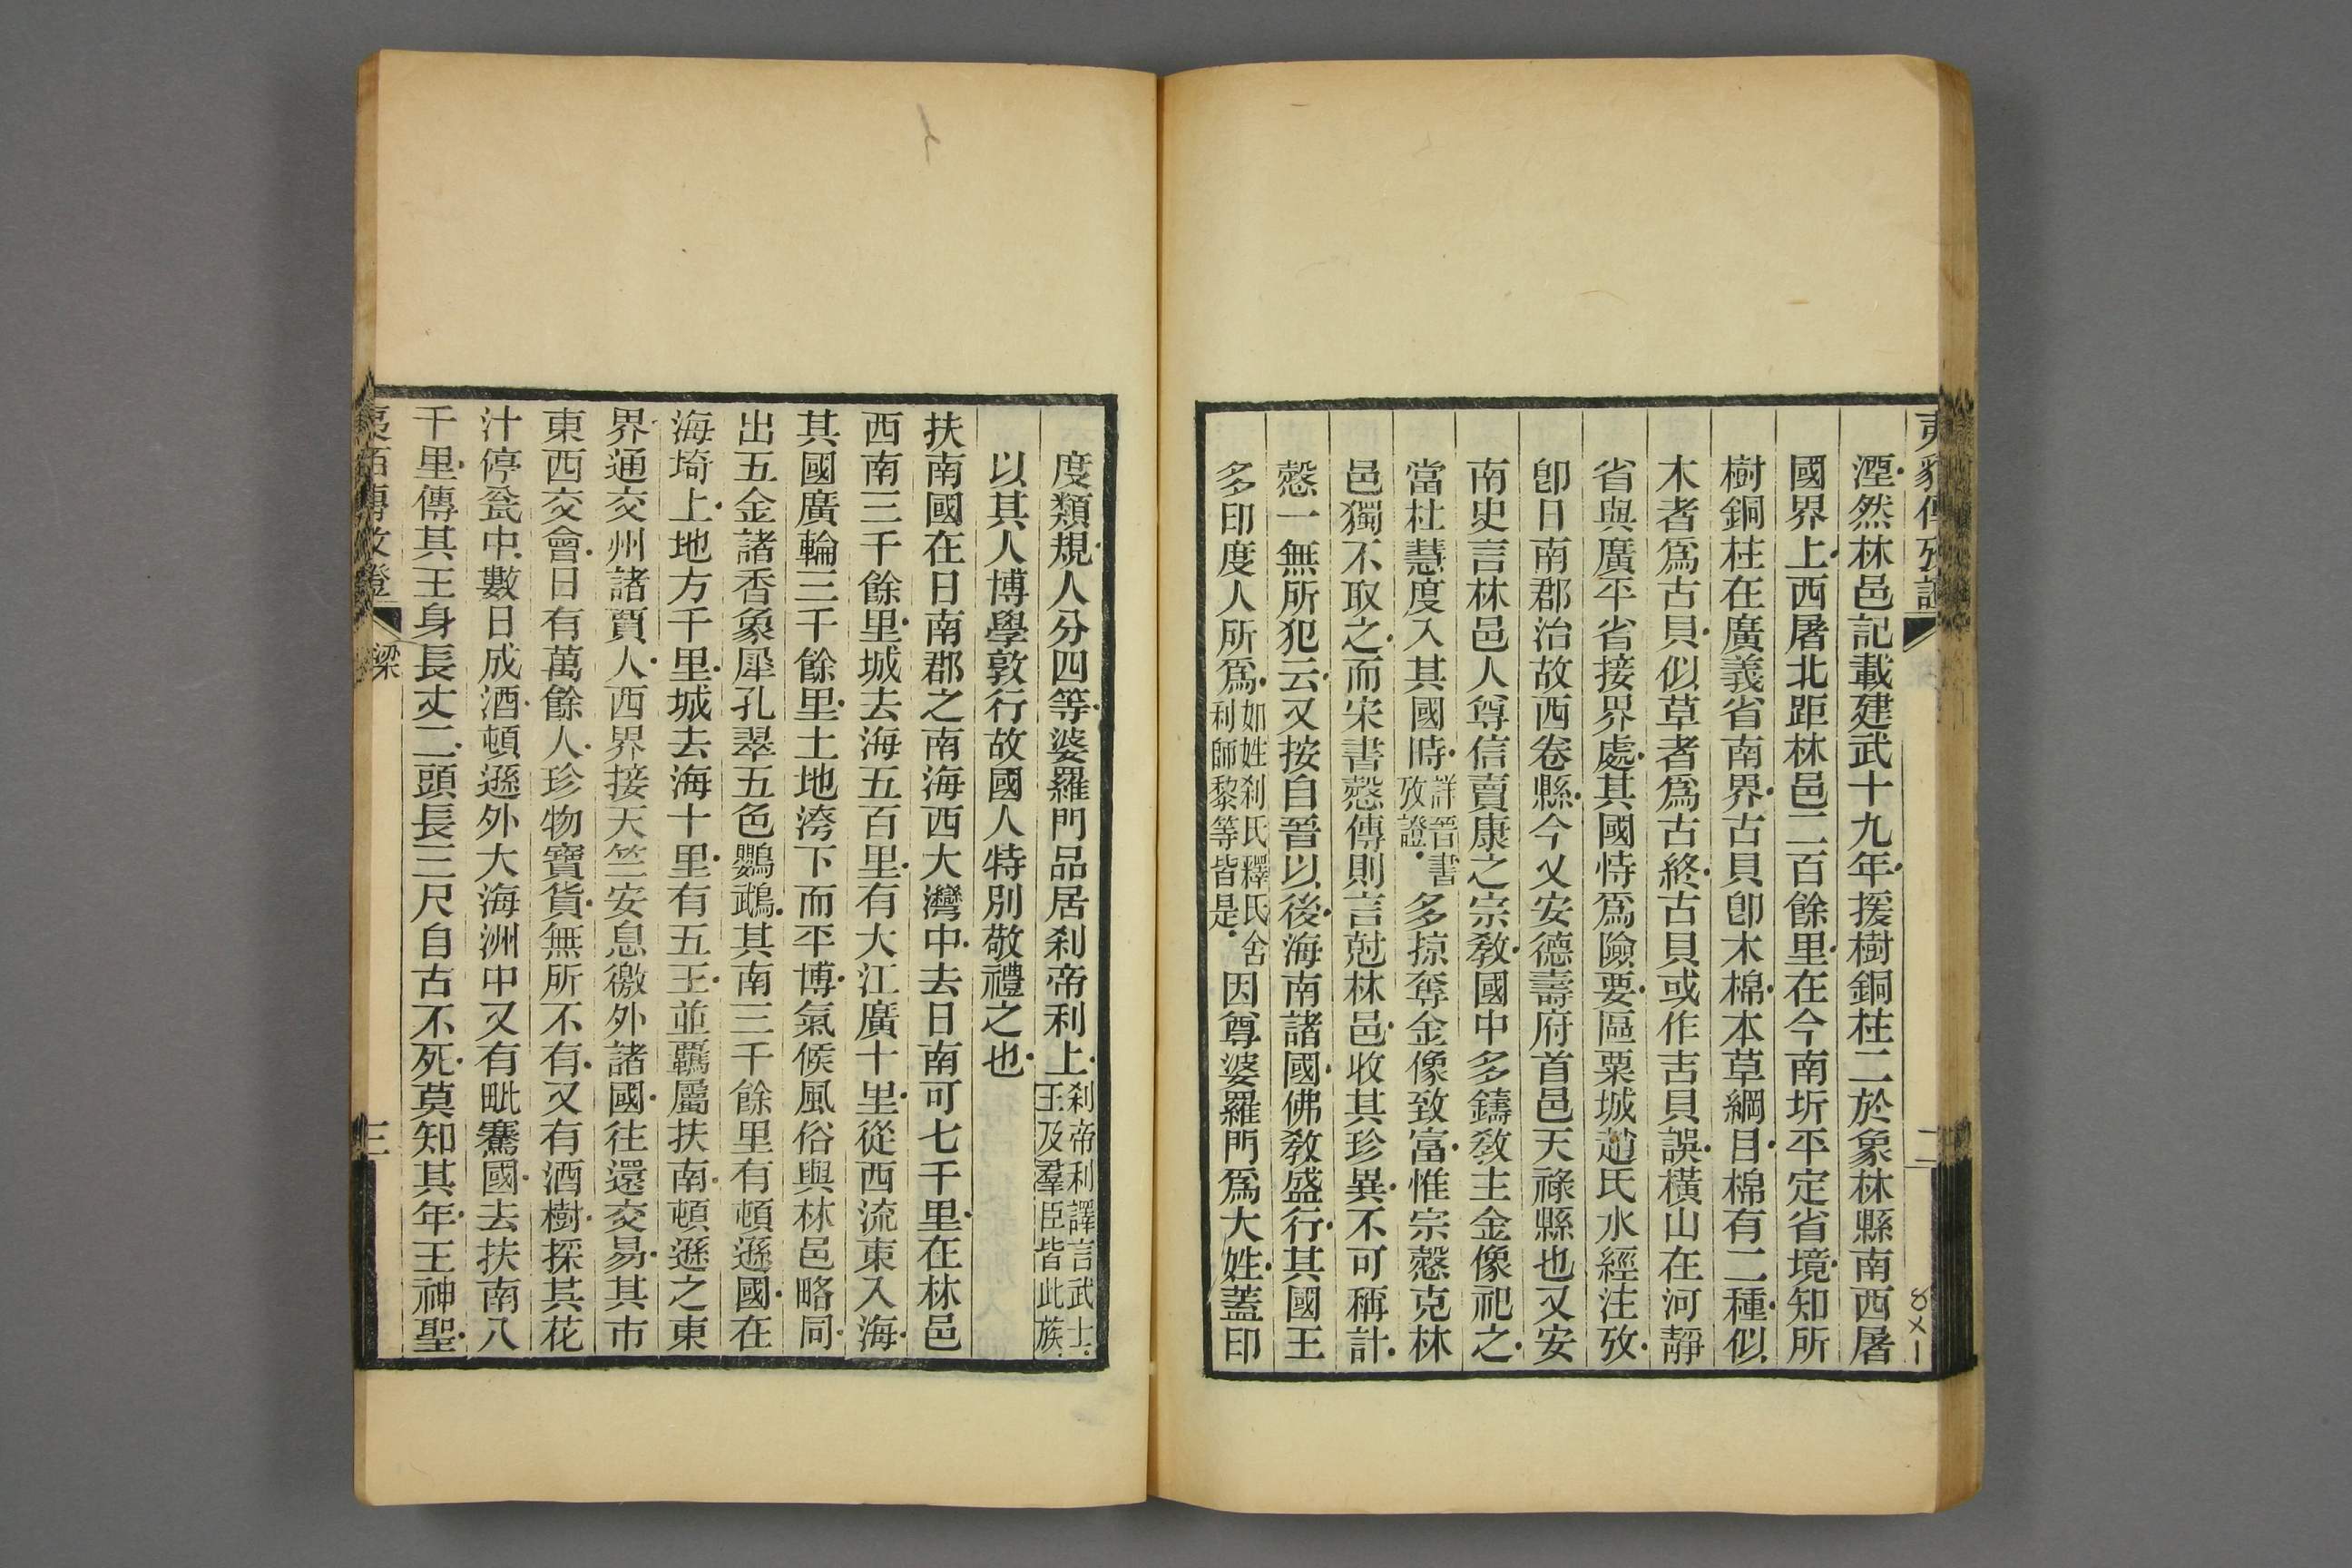 湮然林邑記載建武十九年援樹銅柱二於象林縣南西屠
國界上西屠北距林邑二百餘里在今南圻平定省境知所
樹銅柱在廣義省南界古貝卽木棉本草綱目棉有二種似
木者爲古貝似草者爲古終古貝或作吉貝誤橫山在河靜
省與廣平省接界處其國恃爲險要區粟城趙氏水經注攷
卽日南郡治故西卷縣今乂安德壽府首邑天祿縣也又安
南史言林邑人尊信賣康之宗敎國中多鑄敎主金像祀之
當杜慧度入其國時詳晉書攷證多掠奪金像致富惟宗慤克林
邑獨不取之而宋書慤傳則言尅林邑收其珍異不可稱計
慤一無所犯云又按自晉以後海南諸國佛敎盛行其國王
多印度人所爲如姓刹氏釋氏舍利師黎等皆是因尊婆羅門爲大姓蓋印
二
度類規人分四等婆羅門品居刹帝利上刹帝利譯言武士王及羣臣皆此族
以其人博學敦行故國人特別敬禮之也
扶南國在日南郡之南海西大灣中去日南可七千里在林邑
西南三千餘里城去海五百里有大江廣十里從西流東入海
其國廣輪三千餘里土地洿下而平博氣候風俗與林邑略同
出五金諸香象犀孔翠五色鸚鵡其南三千餘里有頓遜國在
海埼上地方千里城去海十里有五王並羈屬扶南頓遜之東
界通交州諸賈人西界接天竺安息徼外諸國往還交易其市
東西交會日有萬餘人珍物寶貨無所不有又有酒樹採其花
汁停瓮中數日成酒頓遜外大海洲中又有毗騫國去扶南八
千里傳其王身長丈二頭長三尺自古不死莫知其年王神聖
梁
三